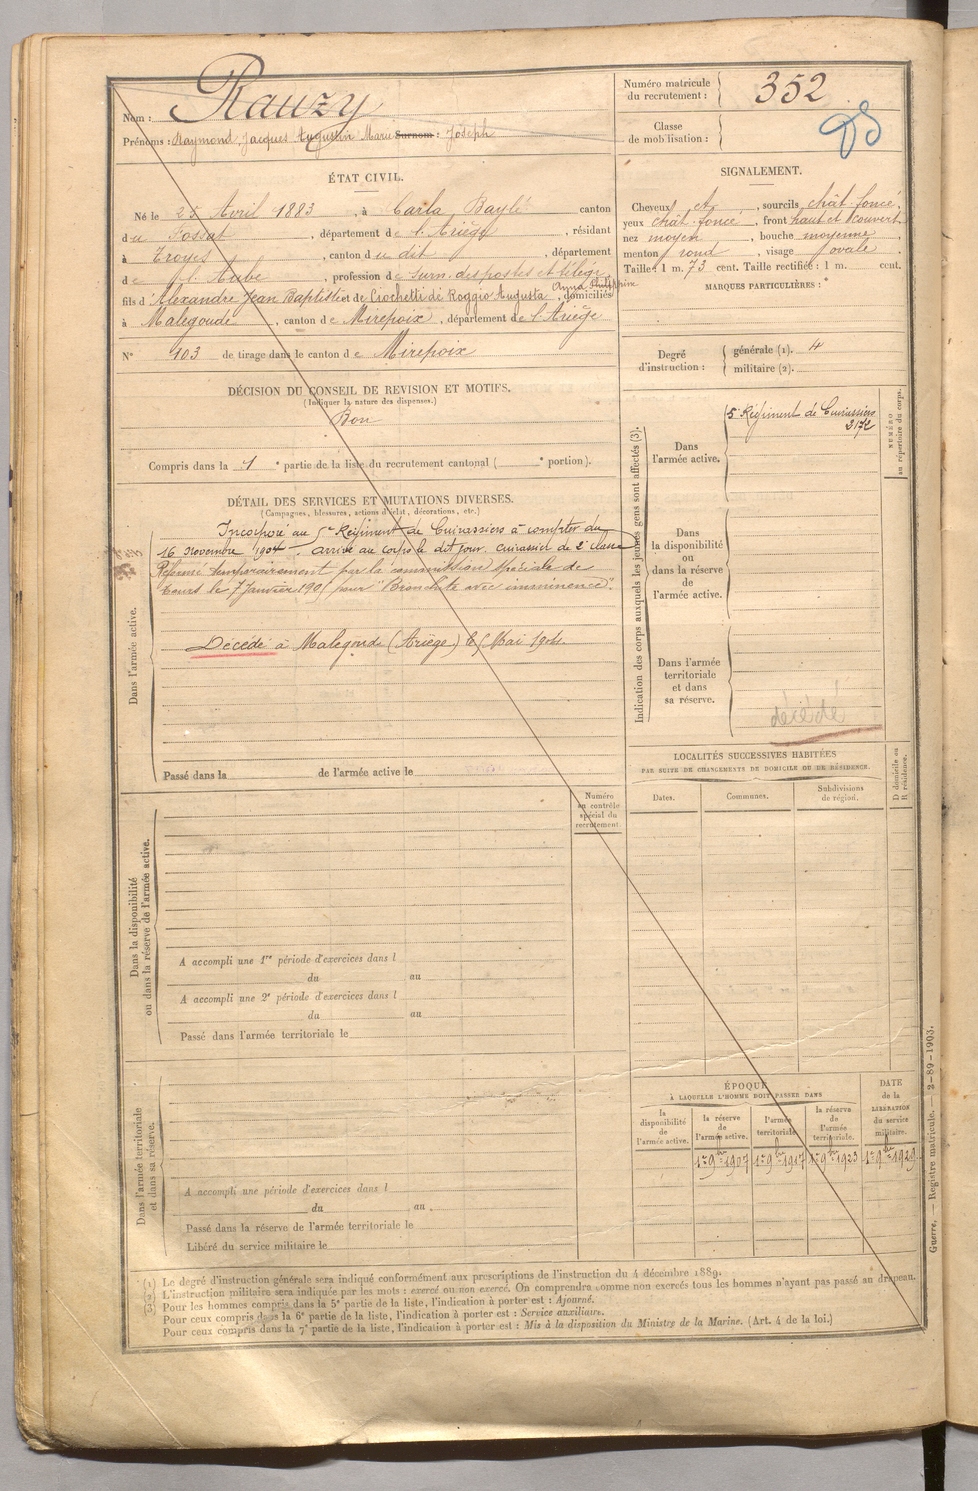 Nom : Rauzy
Prénoms : Raymond, Jacques Augustin Marie Surnom : Joseph
Numéro matricule du recrutement : 352
Classe de mobilisation :
ÉTAT CIVIL.
Né le 25 Avril 1883, à Carla Bayle canton
du Fossat, département de l'Ariège, résidant
à Troyes, canton du dit, département
de l'Aube, profession de surn. des postes et télégr.
Anna Philippine
fils d'Alexandre Jean Baptiste et de Ciochetti di Roggio Augusta, domiciliés
à Malegoude, canton de Mirepoix, département de l'Ariège
N° 103 de tirage dans le canton de Mirepoix
SIGNALEMENT.
Cheveux et, sourcils chât. foncé,
yeux chât. foncé, front haut et découvert,
nez moyen, bouche moyenne,
menton rond, visage ovale
Taille : 1 m. 73 cent. Taille rectifiée : 1 m. cent.
MARQUES PARTICULIÈRES :
Degré d'instruction : générale (1). 4
militaire (2).
DÉCISION DU CONSEIL DE REVISION ET MOTIFS.
(Indiquer la nature des dispenses.)
Bon
Compris dans la 1e partie de la liste du recrutement cantonal ( e portion).
DÉTAIL DES SERVICES ET MUTATIONS DIVERSES.
(Campagnes, blessures, actions d'éclat, décorations, etc.)
Dans l'armée active.
Incorporé au 5e Régiment de Cuirassiers à compter du
16 novembre 1904. arrivé au corps le dit jour. cuirassier de 2e classe
Réformé temporairement par la commission spéciale de
Tours le 7 Janvier 190 pour "Bronchite avec imminence".
Décédé à Malegoude (Ariège) le 5 Mai 190
Passé dans la de l'armée active le
Indication des corps auxquels les jeunes gens sont affectés (3).
NUMÉRO au répertoire du corps.
Dans l'armée active.
5e Régiment de Cuirassiers
3172
Dans la disponibilité ou dans la réserve de l'armée active.
Dans l'armée territoriale et dans sa réserve.
décédé
LOCALITÉS SUCCESSIVES HABITÉES
PAR SUITE DE CHANGEMENTS DE DOMICILE OU DE RÉSIDENCE.
Dates. Communes. Subdivisions de région. D domicile ou R résidence.
Numéro au contrôle spécial du recrutement.
Dans la disponibilité ou dans la réserve de l'armée active.
A accompli une 1re période d'exercices dans l
du au
A accompli une 2e période d'exercices dans l
du au
Passé dans l'armée territoriale le
Dans l'armée territoriale et dans sa réserve.
A accompli une période d'exercices dans l
du au
Passé dans la réserve de l'armée territoriale le
Libéré du service militaire le
ÉPOQUE
À LAQUELLE L'HOMME DOIT PASSER DANS
la disponibilité de l'armée active. la réserve de l'armée active. l'armée territoriale. la réserve de l'armée territoriale. DATE de la LIBÉRATION du service militaire.
1er 9bre 1907 1er 9bre 1917 1er 9bre 1923 1er 9bre 1929
(1) Le degré d'instruction générale sera indiqué conformément aux prescriptions de l'instruction du 4 décembre 1889.
(2) L'instruction militaire sera indiquée par les mots : exercé ou non exercé. On comprendra comme non exercés tous les hommes n'ayant pas passé au drapeau.
(3) Pour les hommes compris dans la 5e partie de la liste, l'indication à porter est : Ajourné.
Pour ceux compris dans la 6e partie de la liste, l'indication à porter est : Service auxiliaire.
Pour ceux compris dans la 7e partie de la liste, l'indication à porter est : Mis à la disposition du Ministre de la Marine. (Art. 4 de la loi.)
Guerre. — Registre matricule. — 2-89-1903.